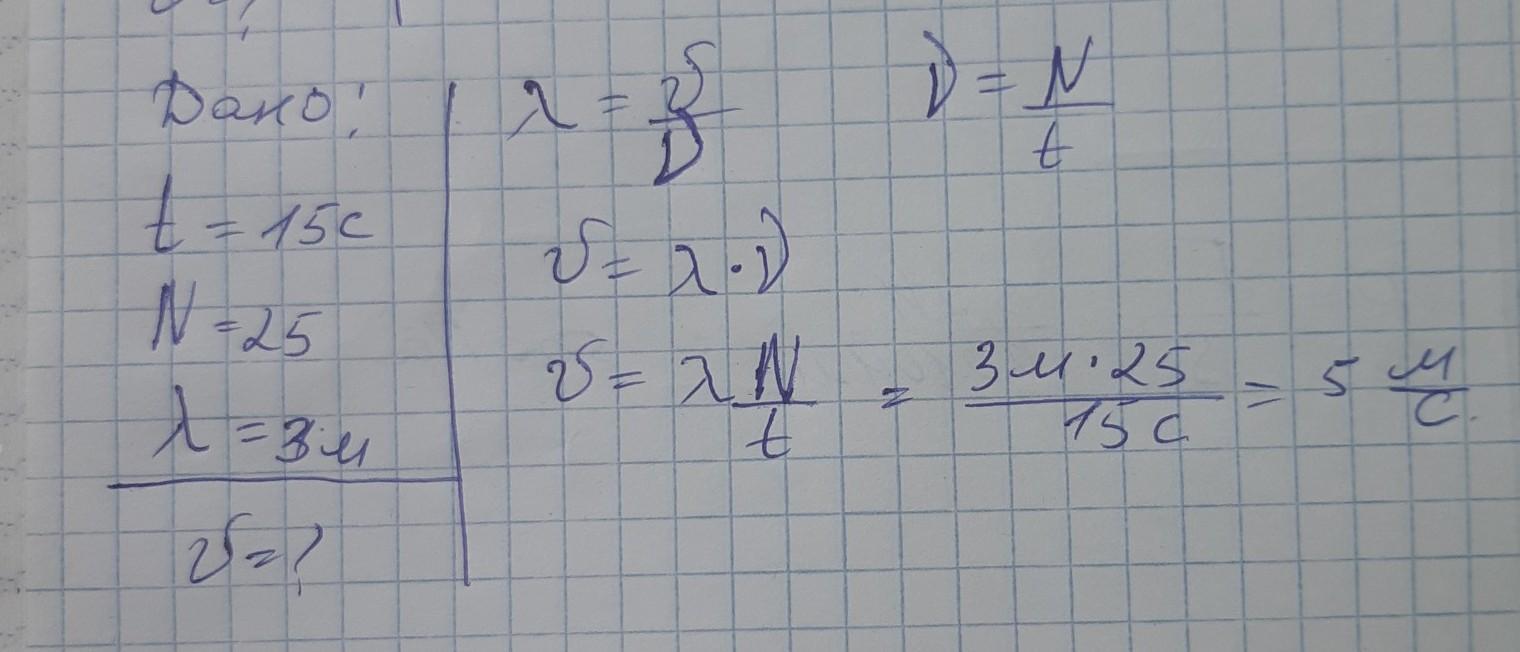 Дано:
t = 15с
N = 25
λ = 3м
υ = ?
λ = υ/ν
ν = N/t
υ = λ · ν
υ = λ N/t = 3м · 25 / 15с = 5 м/с.